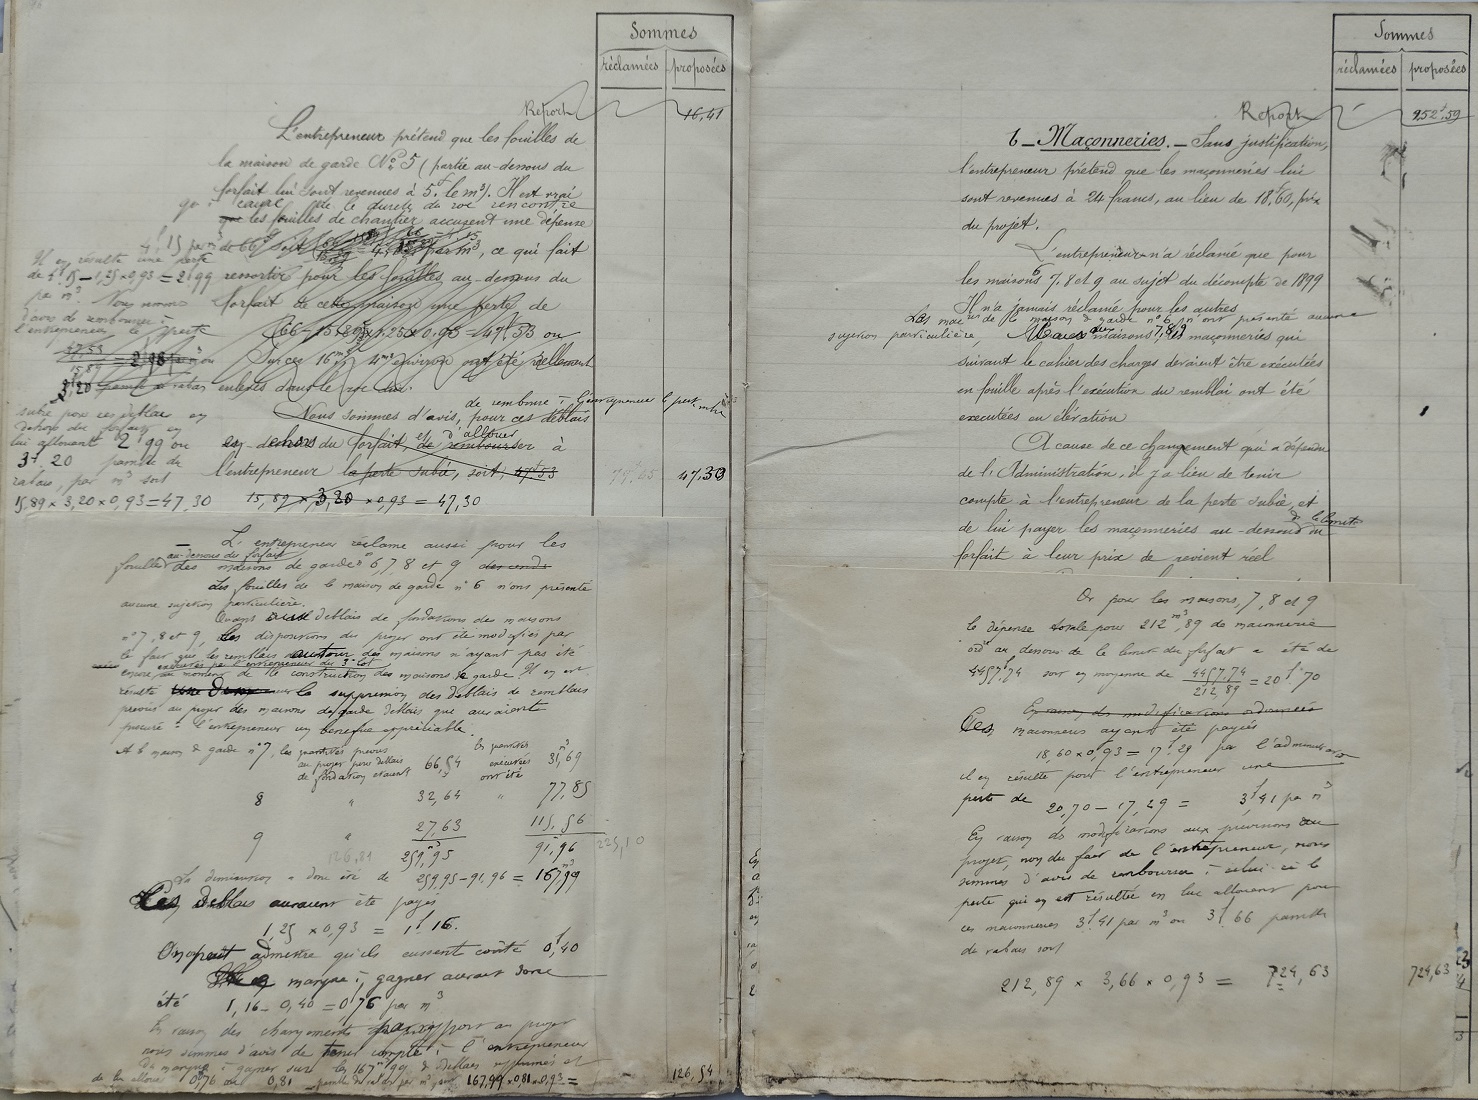 Sommes
réclamées proposées
Report 16,41
L'entrepreneur prétend que les fouilles de
la maison de garde No 5 (partie au-dessous du
forfait lui sont revenues à 5f le m3). Il est vrai
qu'à cause de la dureté du roc rencontré
les fouilles de chantier accusent une dépense
4f,15 par m3 de 66f soit par m3, ce qui fait
Il en résulte une perte
de 4f,15 - 1,25 x 0,93 = 2f99 ressortir pour les fouilles au-dessous du
par m3. Nous sommes forfait de cette maison une perte de
d'avis de rembourser à
l'entrepreneur la perte (66 - 15,89 x 1,25 x 0,93 = 47f,53 ou
47,53
15,89 = 2,98 Sur ces 16m3 4m3 environ ont été réellement
3f,20 enlevés dans le roc dur.
de rembourser à l'entrepreneur la perte
subie pour ces déblais en Nous sommes d'avis, pour ces déblais
dehors du forfait en
lui allouant 2f99 ou en dehors du forfait, et d'allouer de rembourser à
3f,20 passible de l'entrepreneur la perte subie, soit, 47f53 47,30
rabais, par m3 soit
15,89 x 3,20 x 0,93 = 47,30 15,89 x 3,20 x 0,93 = 47,30
L'entrepreneur réclame aussi pour les
au-dessous du forfait
fouilles des maisons de garde nos 6, 7, 8 et 9
Les fouilles de la maison de garde no 6 n'ont présenté
aucune sujétion particulière.
Quant aux déblais de fondations des maisons
no 7, 8 et 9, les dispositions du projet ont été modifiées par
le fait que les remblais autour des maisons n'ayant pas été
exécutés par l'entrepreneur du 3e lot
encore au moment de la construction des maisons de garde. Il en est
résulté la suppression des déblais de remblais
prévus au projet des maisons de garde déblais que auraient
procuré à l'entrepreneur un bénéfice appréciable.
A la maison de garde no 7, les quantités prévues
au projet pour déblais
de fondation étaient 66,54 les quantités
exécutées
ont été 31m3,69
8 " 32,64 " 77,85
9 " 27,63 115,56
126,81 259m3,95 91,96 225,10
La diminution a donc été de 259,95 - 91,96 = 167m3,99
Les déblais auraient été payés
1,25 x 0,93 = 1f,16.
On peut admettre qu'ils eussent coûté 0f,40
manque à gagner aurait donc
été 1,16 - 0,40 = 0f,76 par m3
En raison des changements par rapport au projet
nous sommes d'avis de tenir compte à l'entrepreneur
du manque à gagner sur les 167m3,99 de déblais supprimés et
de lui allouer 0f,76 ou 0,81 passible de rabais par m3, soit 167,99 x 0,81 x 0,93 = 126,54
Sommes
réclamées proposées
Report 952f,59
6 - Maçonneries. - Sans justification,
l'entrepreneur prétend que les maçonneries lui
sont revenues à 24 francs, au lieu de 18f,60, prix
du projet.
L'entrepreneur n'a réclamé que pour
les maisons 6, 7, 8 et 9 au sujet du décompte de 1899
Il n'a jamais réclamé pour les autres
Les maçries de la maison de garde no 6 n'ont présenté aucune
sujétion particulière, aux maisons 7, 8, 9 les maçonneries qui
suivant le cahier des charges devaient être exécutées
en fouille après l'exécution du remblai ont été
exécutées en élévation
A cause de ce changement qui a dépendu
de l'Administration, il y a lieu de tenir
compte à l'entrepreneur de la perte subie, et
de lui payer les maçonneries au-dessous de la limite du
forfait à leur prix de revient réel
Or pour les maisons, 7, 8 et 9
la dépense totale pour 212m3,89 de maçonnerie
ord. au dessous de la limite du forfait a été de
4457f,74 soit en moyenne de 4457,74
212,89 = 20f,70
En raison des modifications ordonnées
Ces maçonneries ayant été payées
18,60 x 0,93 = 17f,29 par l'administration
il en résulte pour l'entrepreneur une
perte de 20,70 - 17,29 = 3f,41 par m3
En raison des modifications aux prévisions du
projet, non du fait de l'entrepreneur, nous
sommes d'avis de rembourser à celui-ci la
perte qui en est résultée en lui allouant pour
ces maçonneries 3f,41 par m3 ou 3f,66 passible
de rabais soit
212,89 x 3,66 x 0,93 = 724,63 724,63